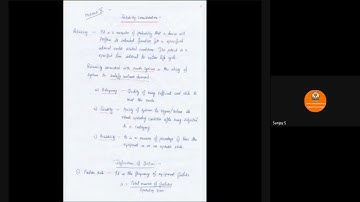 Module 5
Reliability Considerations
Reliability - It is a measure of probability that a device will
perform its intended function for a specified
interval under stated conditions. The period is a
specified time interval to entire life cycle.
Reliability associated with power system is the ability of
system to satisfy customer demand.
a) Adequacy - Quality of being sufficient and able to
meet the needs
b) Security - Ability of system to regain/retain its
normal operating condition after being subjected
to a contingency
c) Availability - It is a measure of percentage of time the
equipment is in an operable state.
Definition of Terms:-
1) Failure rate - It is the frequency of equipment failure
λ = Total number of failures
Operating time
Sanjay S